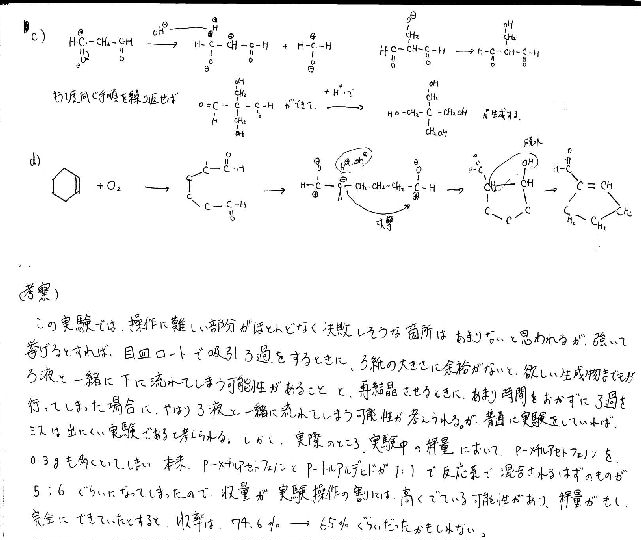 c)
もう1度同じ手順を繰り返せば ができて、 +H⁺で が生成する。
d) + O₂ 攻撃 脱水
(考察)
この実験では、操作に難しい部分がほとんどなく失敗しそうな箇所はあまりないと思われるが、強いて
挙げるとすれば、目皿ロートで吸引ろ過をするときに、ろ紙の大きさに余裕がないと、欲しい生成物までもが
ろ液と一緒に下に流れてしまう可能性があることと、再結晶させるときに、あまり時間をおかずにろ過を
行ってしまった場合に、やはりろ液と一緒に流れてしまう可能性が考えられるが、普通に実験をしていれば、
ミスは出にくい実験であると考えられる。しかし、実際のところ、実験中の秤量において、P-メチルアセトフェノンを
0.3g も多くいてしまい 本来、P-メチルアセトフェノンとP-トルアルデヒドが1:1で反応系で混合されるはずのものが
5:6ぐらいになってしまったので、収量が実験操作の割には、高くでている可能性があり、秤量がもし、
完全にできていたとすると、収率は、74.6% → 65%ぐらいだったかもしれない。